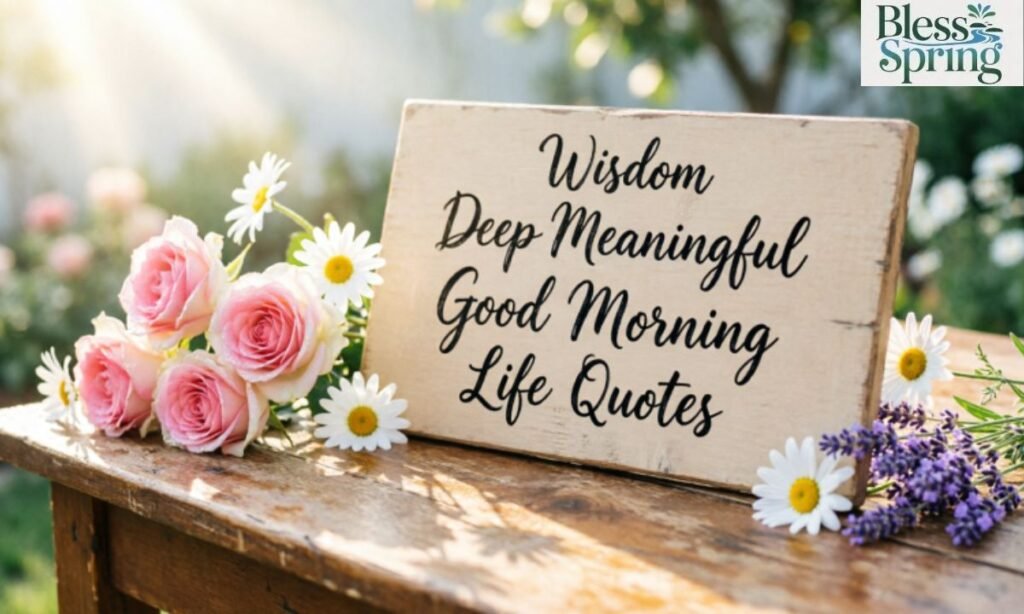 Bless
Spring
Wisdom
Deep Meaningful
Good Morning
Life Quotes